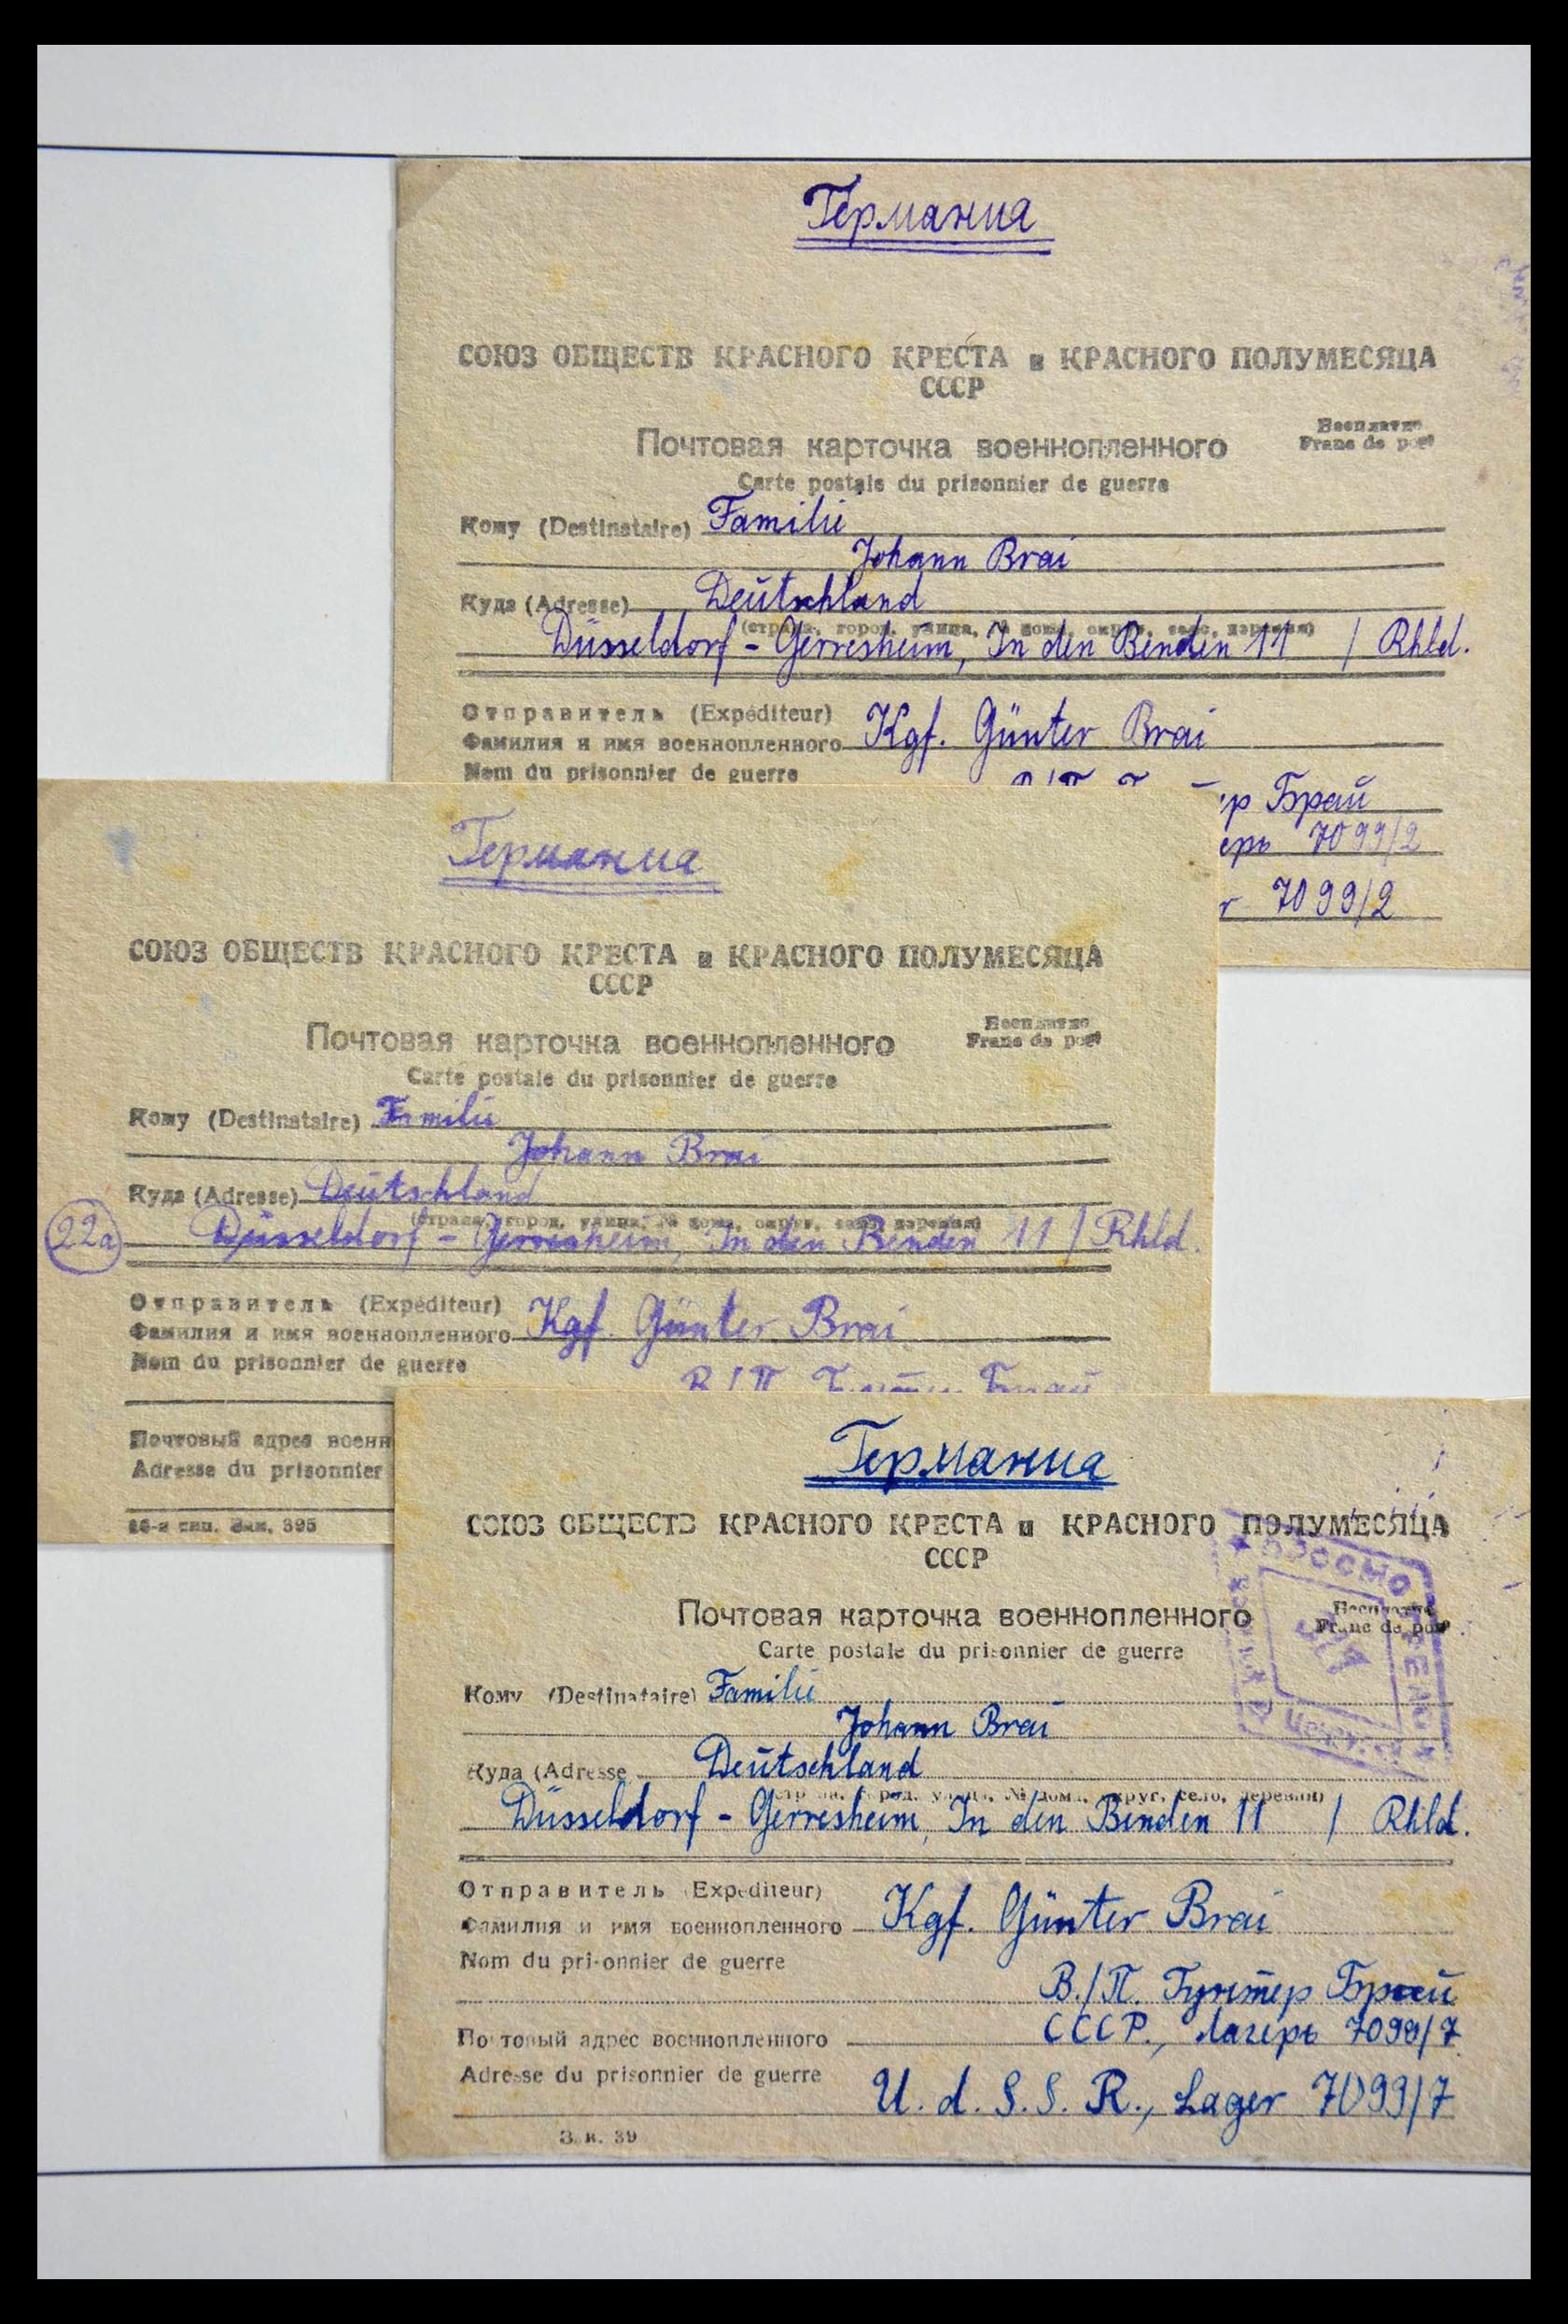 Германия
СОЮЗ ОБЩЕСТВ КРАСНОГО КРЕСТА и КРАСНОГО ПОЛУМЕСЯЦА
СССР
Почтовая карточка военнопленного
Бесплатно
Franc de port
Carte postale du prisonnier de guerre
Кому (Destinataire) Familie
Johann Brai
Куда (Adresse) Deutschland
(страна, город, улица, № дома, округ, село, деревня)
Düsseldorf - Gerresheim, In den Benden 11 / Rhld.
Отправитель (Expéditeur)
Фамилия и имя военнопленного Kgf. Günter Brai
Nom du prisonnier de guerre
Брай
7099/2
7099/2
Германия
СОЮЗ ОБЩЕСТВ КРАСНОГО КРЕСТА и КРАСНОГО ПОЛУМЕСЯЦА
СССР
Почтовая карточка военнопленного
Бесплатно
Franc de port
Carte postale du prisonnier de guerre
Кому (Destinataire) Familie
Johann Brai
Куда (Adresse) Deutschland
(страна, город, улица, № дома, округ, село, деревня)
22a Düsseldorf - Gerresheim, In den Benden 11 / Rhld.
Отправитель (Expéditeur)
Фамилия и имя военнопленного Kgf. Günter Brai
Nom du prisonnier de guerre
В/П Гунтер Брай
Почтовый адрес военн
Adresse du prisonnier
16-я тип. Зак. 395
Германия
СОЮЗ ОБЩЕСТВ КРАСНОГО КРЕСТА и КРАСНОГО ПОЛУМЕСЯЦА
СССР
Почтовая карточка военнопленного
Бесплатно
Franc de port
Carte postale du prisonnier de guerre
Кому (Destinataire) Familie
Johann Brai
Куда (Adresse Deutschland
(страна, город, улица, № дома, округ, село, деревня)
Düsseldorf - Gerresheim, In den Benden 11 / Rhld.
Отправитель (Expediteur)
Фамилия и имя военнопленного Kgf. Günter Brai
Nom du prisonnier de guerre
В./П. Гунтер Брай
Почтовый адрес военнопленного СССР., Лагерь 7099/7
Adresse du prisonnier de guerre U. d. S. S. R., Lager 7099/7
Зак. 39